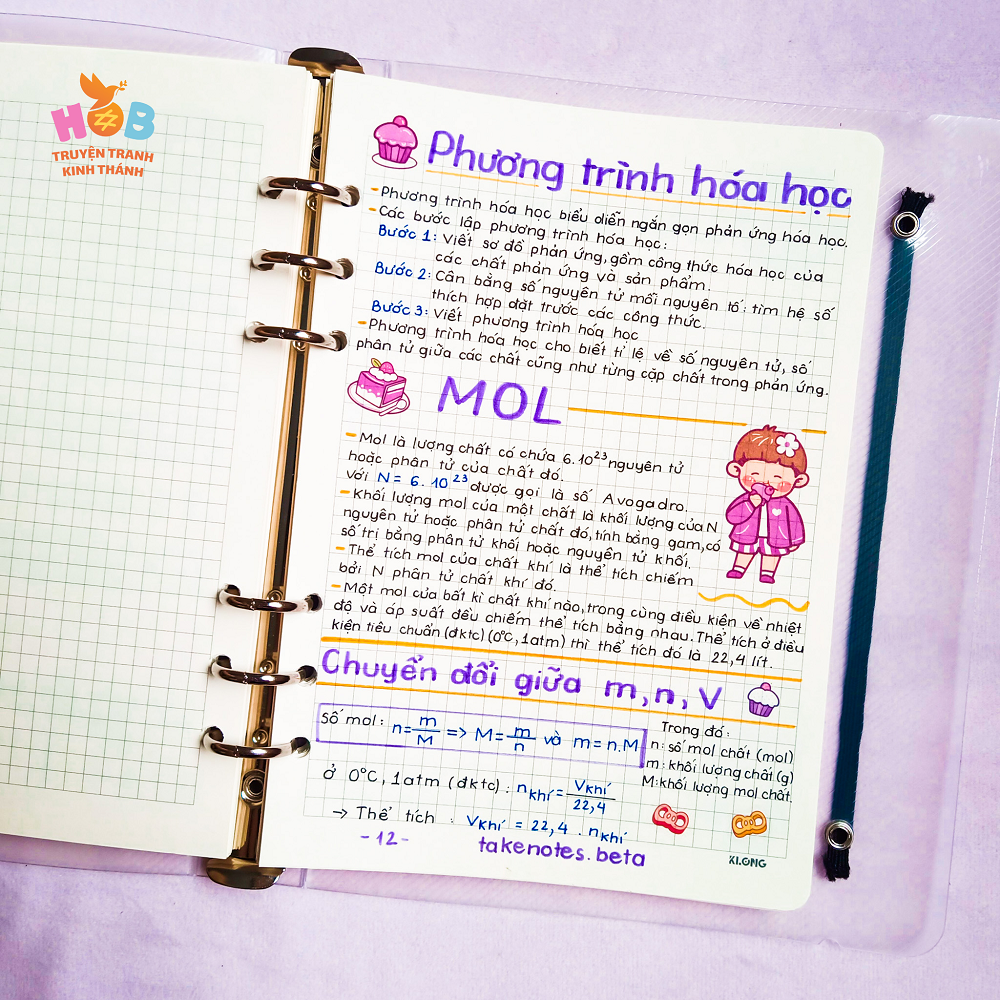 HOB
TRUYỆN TRANH
KINH THÁNH
Phương trình hóa học
- Phương trình hóa học biểu diễn ngắn gọn phản ứng hóa học.
- Các bước lập phương trình hóa học:
Bước 1: Viết sơ đồ phản ứng, gồm công thức hóa học của
các chất phản ứng và sản phẩm.
Bước 2: Cân bằng số nguyên tử mỗi nguyên tố: tìm hệ số
thích hợp đặt trước các công thức.
Bước 3: Viết phương trình hóa học
- Phương trình hóa học cho biết tỉ lệ về số nguyên tử, số
phân tử giữa các chất cũng như từng cặp chất trong phản ứng.
MOL
- Mol là lượng chất có chứa 6.10²³ nguyên tử
hoặc phân tử của chất đó.
Với N = 6.10²³ được gọi là số Avogadro.
- Khối lượng mol của một chất là khối lượng của N
nguyên tử hoặc phân tử chất đó, tính bằng gam, có
số trị bằng phân tử khối hoặc nguyên tử khối.
- Thể tích mol của chất khí là thể tích chiếm
bởi N phân tử chất khí đó.
- Một mol của bất kì chất khí nào, trong cùng điều kiện về nhiệt
độ và áp suất đều chiếm thể tích bằng nhau. Thể tích ở điều
kiện tiêu chuẩn (đktc) (0°C, 1atm) thì thể tích đó là 22,4 lít.
Chuyển đổi giữa m, n, V
số mol: n = m/M => M = m/n và m = n.M
Trong đó:
n: số mol chất (mol)
m: khối lượng chất (g)
M: khối lượng mol chất.
ở 0°C, 1atm (đktc): nkhí = Vkhí/22,4
→ Thể tích: Vkhí = 22,4 . nkhí
-12-
takenotes.beta
KLONG